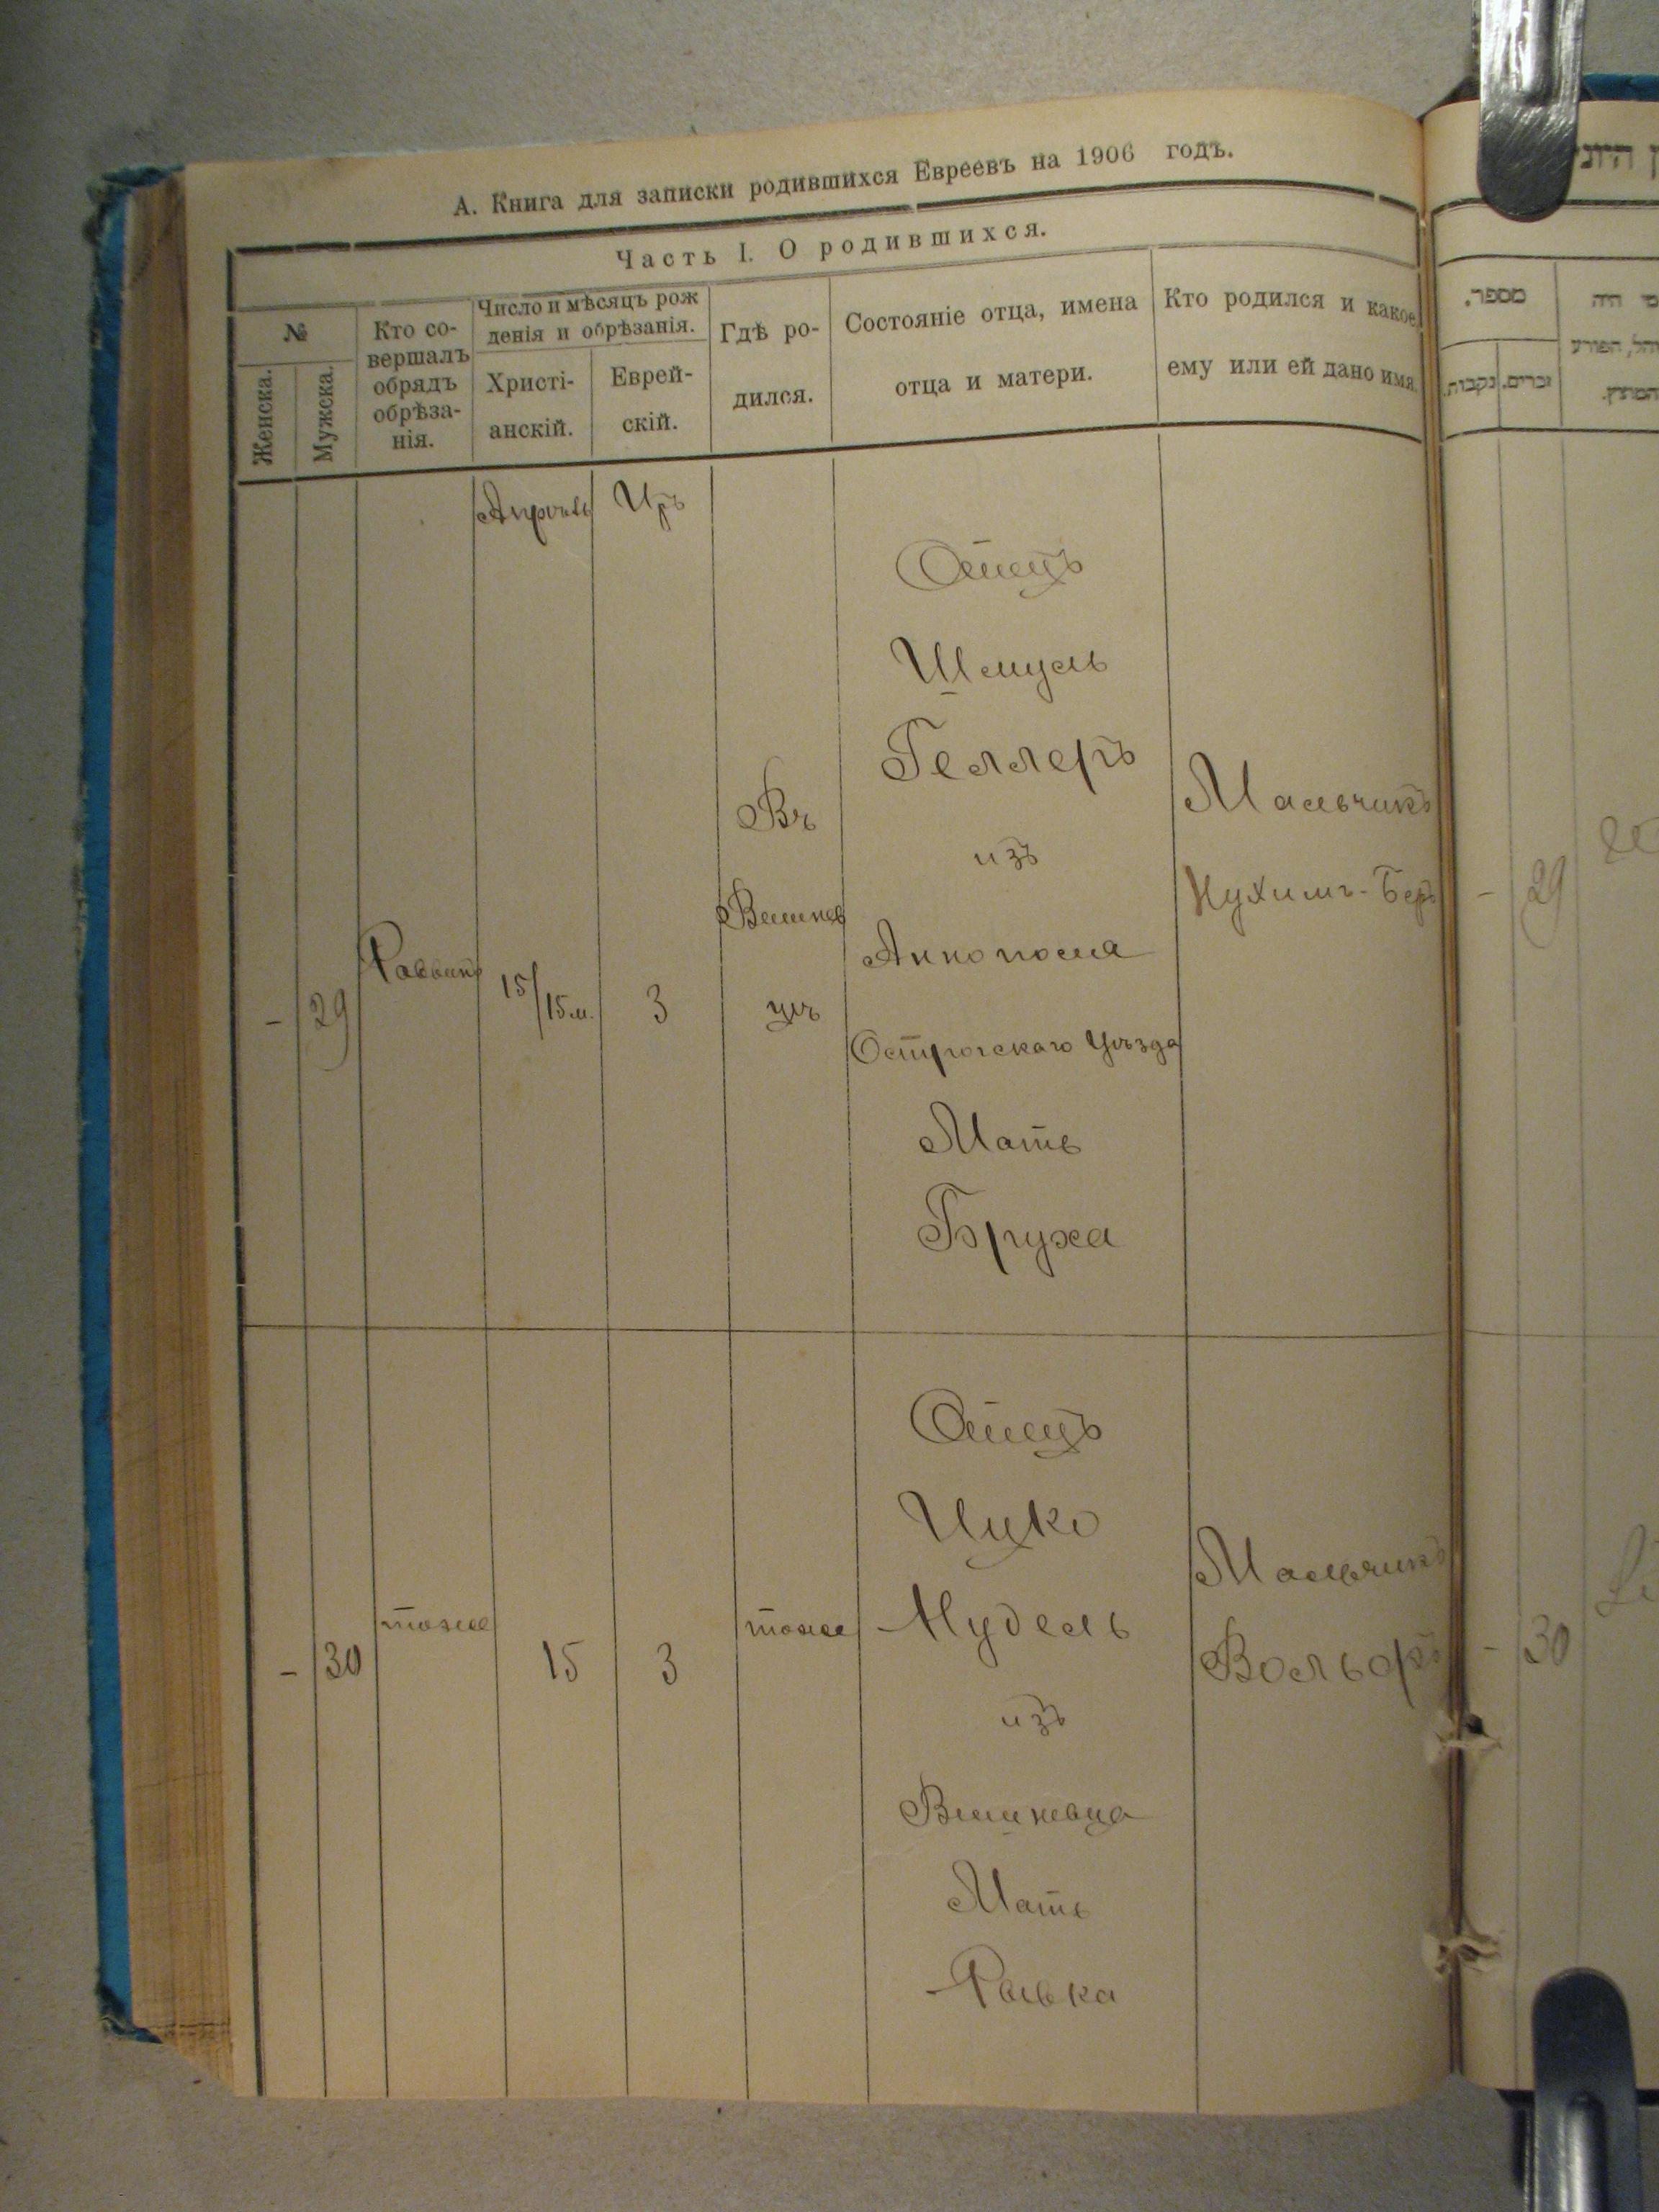 А. Книга для записки родившихся Евреевъ на 1906 годъ.
Часть I. О родившихся.
№
Женска.
Мужска.
Кто со-
вершалъ
обрядъ
обрѣза-
нія.
Число и мѣсяцъ рож
денія и обрѣзанія.
Христі-
анскій.
Еврей-
скій.
Гдѣ ро-
дился.
Состояніе отца, имена
отца и матери.
Кто родился и какое
ему или ей дано имя.
Апрѣль
Иръ
-
29
Раввинъ
15/15м.
3
Въ
Вишнев
цѣ
Отецъ
Шмуель
Геллеръ
изъ
Аннополя
Острогскаго Уѣзда
Мать
Бруха
Мальчикъ
Нухимъ-Беръ
-
30
тоже
15
3
тоже
Отецъ
Ицко
Нудель
изъ
Вишневца
Мать
Мальчикъ
Вольфъ
מספר.
נקבות.
זכרים.
- 29
- 30